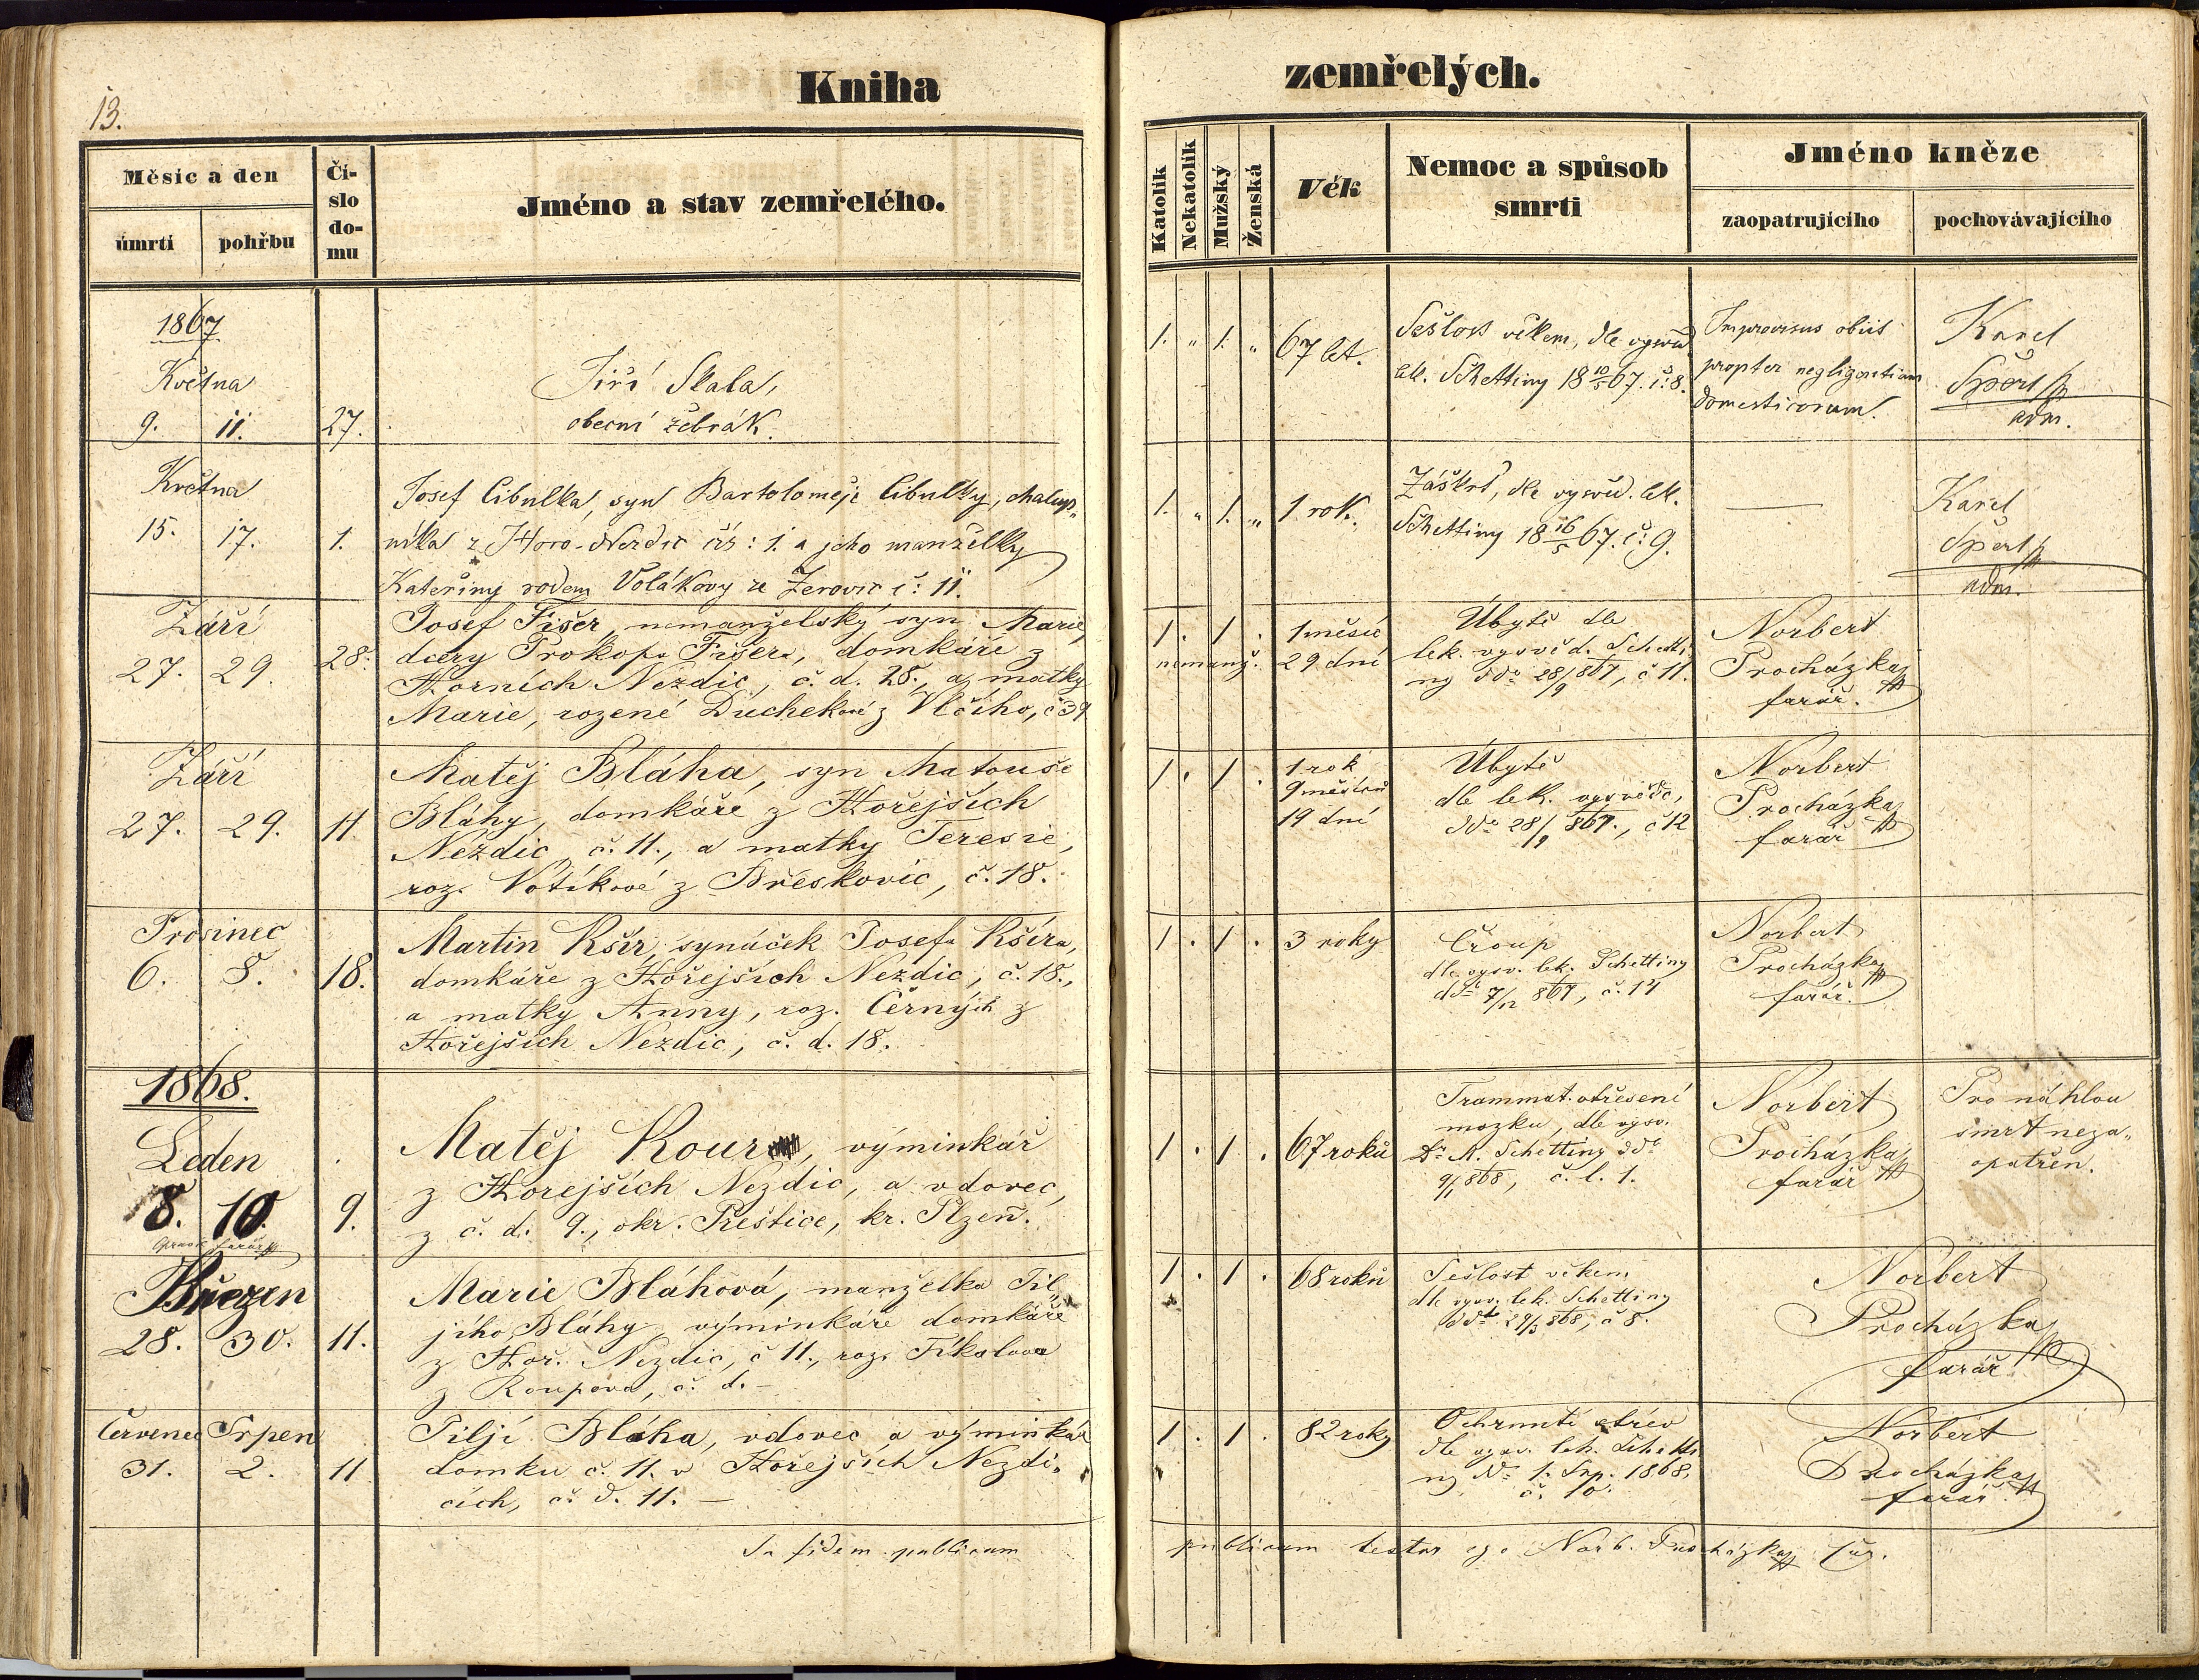 Kniha
zemřelých.
13.
Měsíc a den
úmrtí
pohřbu
Čí-
slo
do-
mu
Jméno a stav zemřelého.
Katolík
Nekatolík
Mužský
Ženská
Věk
Nemoc a spůsob
smrti
Jméno kněze
zaopatrujícího
pochovávajícího
1867
Května
9. 11. 27.
Jiří Skala,
obecní žebrák.
1. " 1. " 67 let.
Sešlost věkem, dle vysvěd
lék. Schettiny 18 10/5 67. č: 8.
Improvisus obiit
propter negligentiam
domesticorum.
Karel
Špert
adm.
Května
15. 17. 1.
Josef Cibulka, syn Bartoloměje Cibulky, chalup„
níka z Horo-Nezdic čís: 1. a jeho manželky
Kateřiny rodem Volákovy ze Žerovic č: 11.
1. " 1. " 1 rok.
Záškrt, dle vysvěd. lék.
Schettiny 18 16/5 67. č: 9.
—
Karel
Špert
adm.
Září
27. 29. 28.
Josef Fišer, nemanželský syn Marie,
dcery Prokopa Fišera, domkáře z
Horních Nezdic, č. d. 28., a matky
Marie, rozené Duchekové z Vlčího, č 39
1 . 1 .
nemanž.
1 měsíc
29 dní
Úbytě dle
lék. vysvěd. Schetti
ny ddo 28/9 867, č 11.
Norbert
Procházka
farář.
Září
27. 29. 11.
Matěj Bláha, syn Matouše
Bláhy, domkáře z Hořejších
Nezdic, č. 11., a matky Teresie,
roz. Votíkové z Břeskovic, č. 18.
1 . 1 .
1 rok
9 měsíců
19 dní
Úbytě
dle lék. vysvědč,
ddo 28/9 867., č 12
Norbert
Procházka
farář
Prosinec
6. 8. 18.
Martin Kšír, synáček Josefa Kšíra,
domkáře z Hořejších Nezdic, č. 18.,
a matky Anny, roz. Černých z
Hořejších Nezdic, č. d. 18.
1 . 1 . 3 roky
Croup
dle vysv. lék. Schettiny
ddo 7/12 867, č. 14
Norbert
Procházka
farář.
1868.
Leden
8. 10. 9.
farář
Matěj Kour, výminkář
z Hořejších Nezdic, a vdovec,
z č. d. 9., okr. Přeštice, kr. Plzeň.
1 . 1 . 67 roků
Trammat. otřesení
mozku, dle vysv.
Dr A. Schettiny ddo
9/1 868, č. l. 1.
Norbert
Procházka
farář
Pro náhlou
smrt neza„
opatřen.
Březen
28. 30. 11.
Marie Bláhová, manželka Til„
jího Bláhy, výminkáře domkáře
z Hoř. Nezdic, č 11., roz. Fikalova
z Roupova, č. d. –
1 . 1 . 68 roků
Sešlost věkem
dle vysv. lék. Schettiny
ddto 29/3 868, č 8.
Norbert
Procházka
farář
Červenec Srpen
31. 2. 11
Tiljí Bláha, vdovec a výminkář
domku č. 11. v Hořejších Nezdi„
cích, č. d. 11. —
1 . 1 . 82 roky
Ochrnutí střev
dle vysv. lék. Schetti
ny ddo 1. Srp. 1868,
č. 10.
Norbert
Procházka
farář
In fidem publicam
publicam testor ego Norb. Procházka